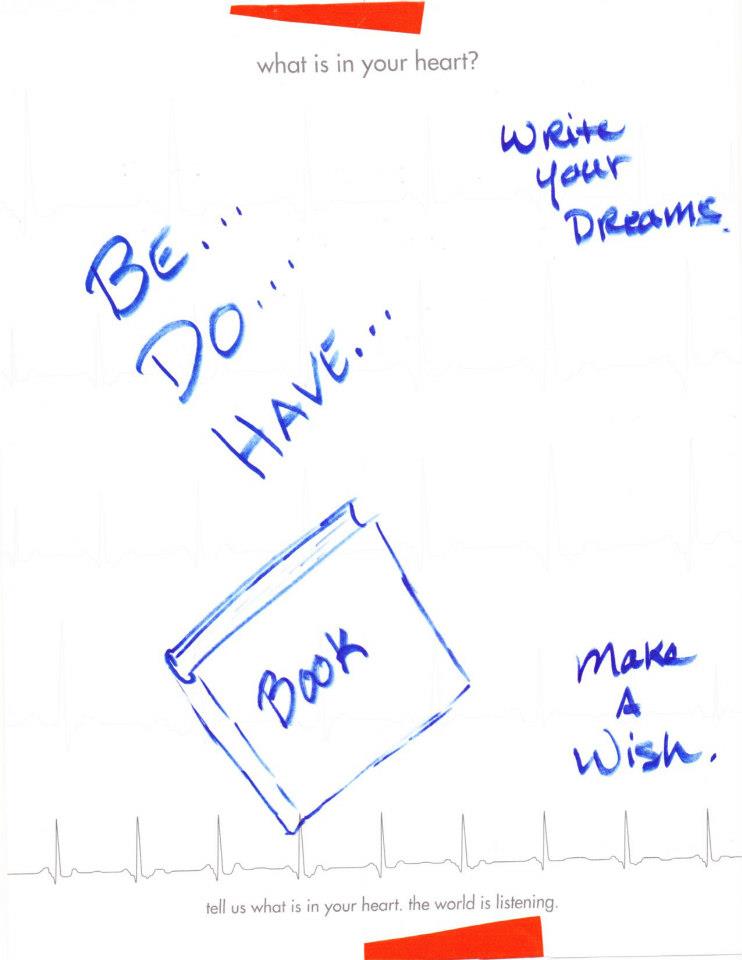 what is in your heart?
Write
your
Dreams.
BE...
DO...
HAVE...
Book
Make
A
Wish.
tell us what is in your heart. the world is listening.